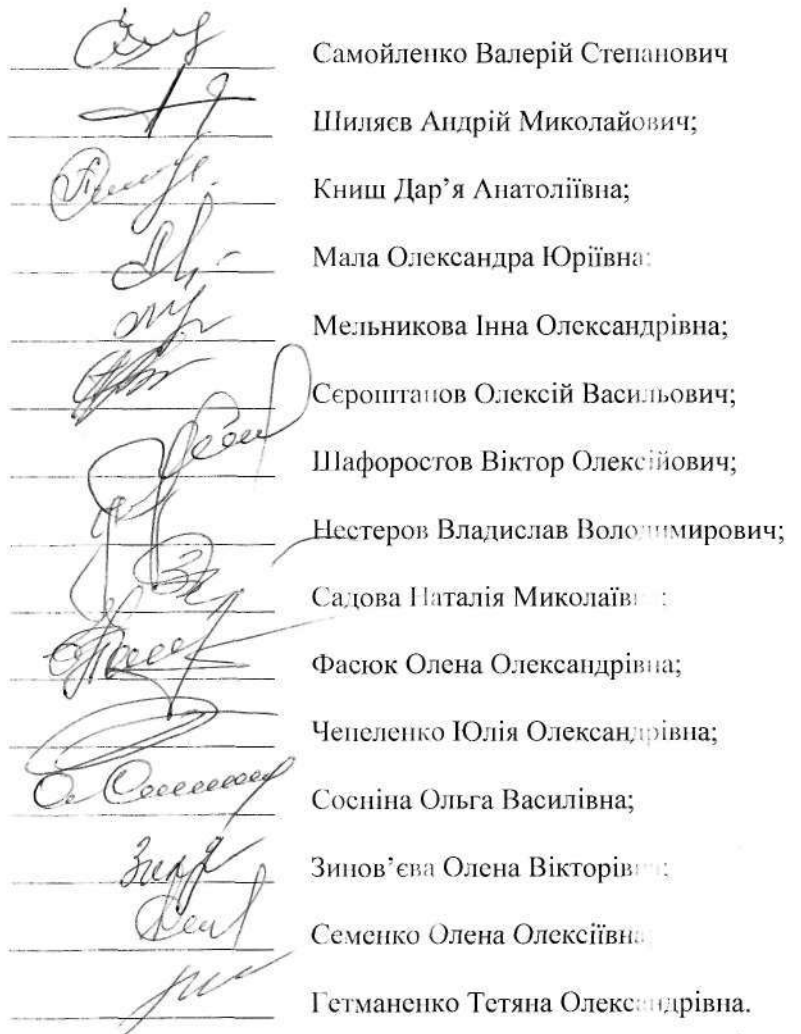 Самойленко Валерій Степанович
Шиляєв Андрій Миколайович;
Книш Дар’я Анатоліївна;
Мала Олександра Юріївна;
Мельникова Інна Олександрівна;
Сєроштанов Олексій Васильович;
Шафоростов Віктор Олексійович;
Нестеров Владислав Володимирович;
Садова Наталія Миколаївна;
Фасюк Олена Олександрівна;
Чепеленко Юлія Олександрівна;
Сосніна Ольга Василівна;
Зинов’єва Олена Вікторівна;
Семенко Олена Олексіївна
Гетманенко Тетяна Олександрівна.